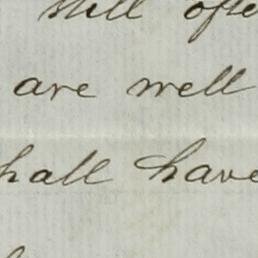 still ofte
are well
hall have